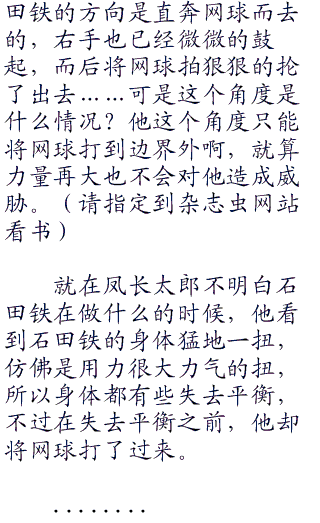 田铁的方向是直奔网球而去
的，右手也已经微微的鼓
起，而后将网球拍狠狠的抡
了出去……可是这个角度是
什么情况？他这个角度只能
将网球打到边界外啊，就算
力量再大也不会对他造成威
胁。（请指定到杂志虫网站
看书）
就在凤长太郎不明白石
田铁在做什么的时候，他看
到石田铁的身体猛地一扭，
仿佛是用力很大力气的扭，
所以身体都有些失去平衡，
不过在失去平衡之前，他却
将网球打了过来。
........